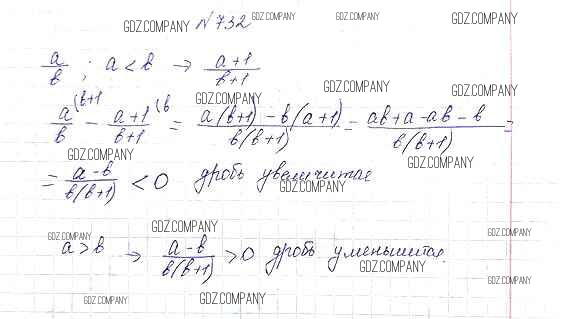 GDZ.COMPANY № 732 GDZ.COMPANY GDZ.COMPANY GDZ.COMPANY
a/b ; a < b → (a+1)/(b+1)
GDZ.COMPANY GDZ.COMPANY GDZ.COMPANY
a/b (b+1 - (a+1)/(b+1) (b = (a(b+1) - b(a+1))/(b(b+1)) = (ab+a-ab-b)/(b(b+1)) =
GDZ.COMPANY GDZ.COMPANY
= (a-b)/(b(b+1)) < 0 дробь увеличится
GDZ.COMPANY
GDZ.COMPANY GDZ.COMPANY GDZ.COMPANY
a > b → (a-b)/(b(b+1)) > 0 дробь уменьшится.
GDZ.COMPANY GDZ.COMPANY
GDZ.COMPANY GDZ.COMPANY GDZ.COMPANY